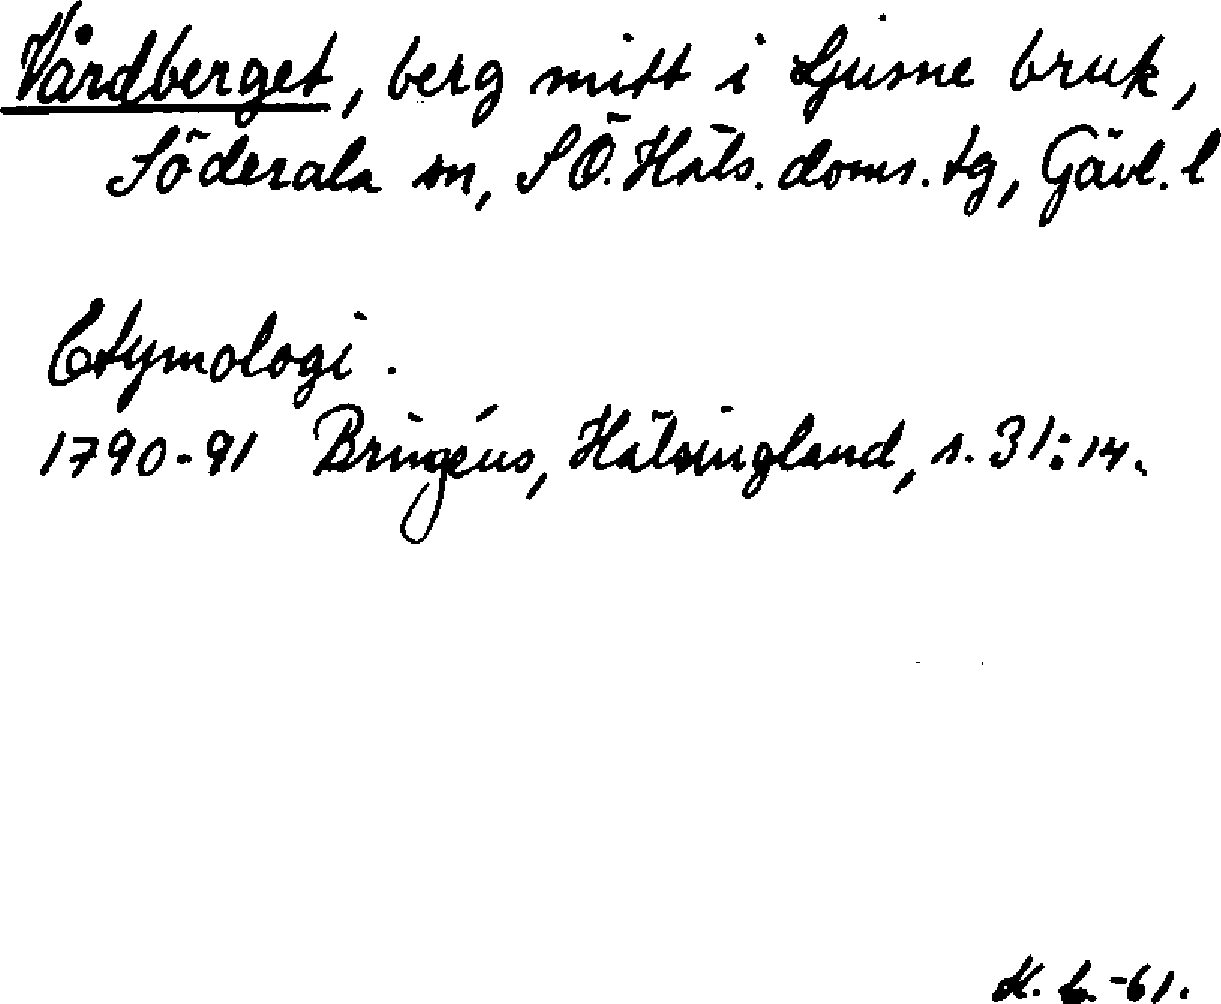 Vårdberget, berg mitt i Ljusne bruk,
Söderala sn, SÖ. Häls. doms. tg, Gävl. l
Etymologi.
1790-91 Bringéus, Hälsingland, s. 31:14.
-61.